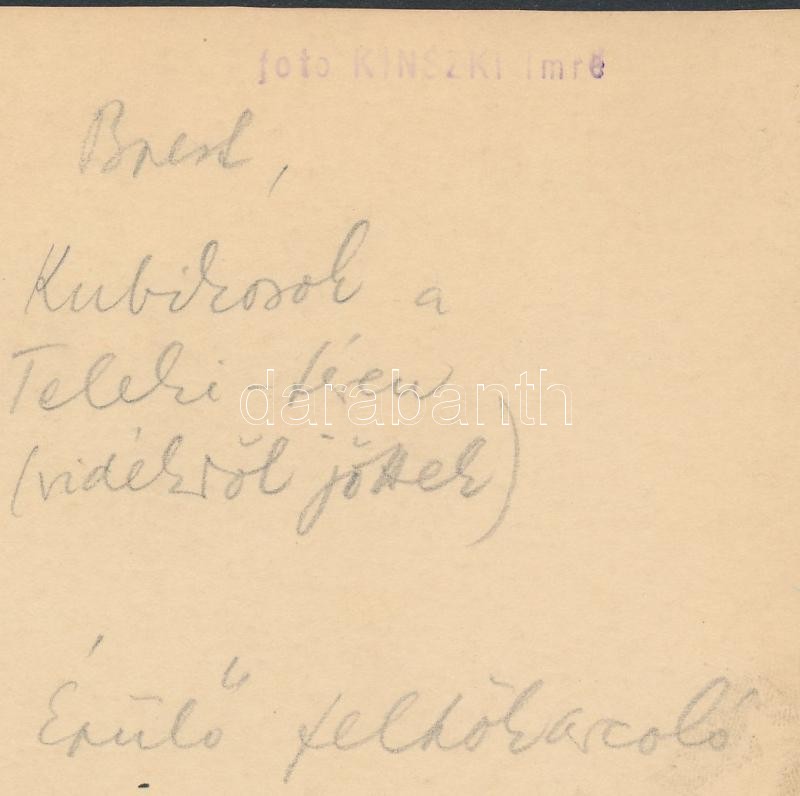 foto KINSZKI Imré
Bpest,
Kubikosok a
Teleki téren
darabanth
(vidékről jöttek)
Épülő felhőkarcoló